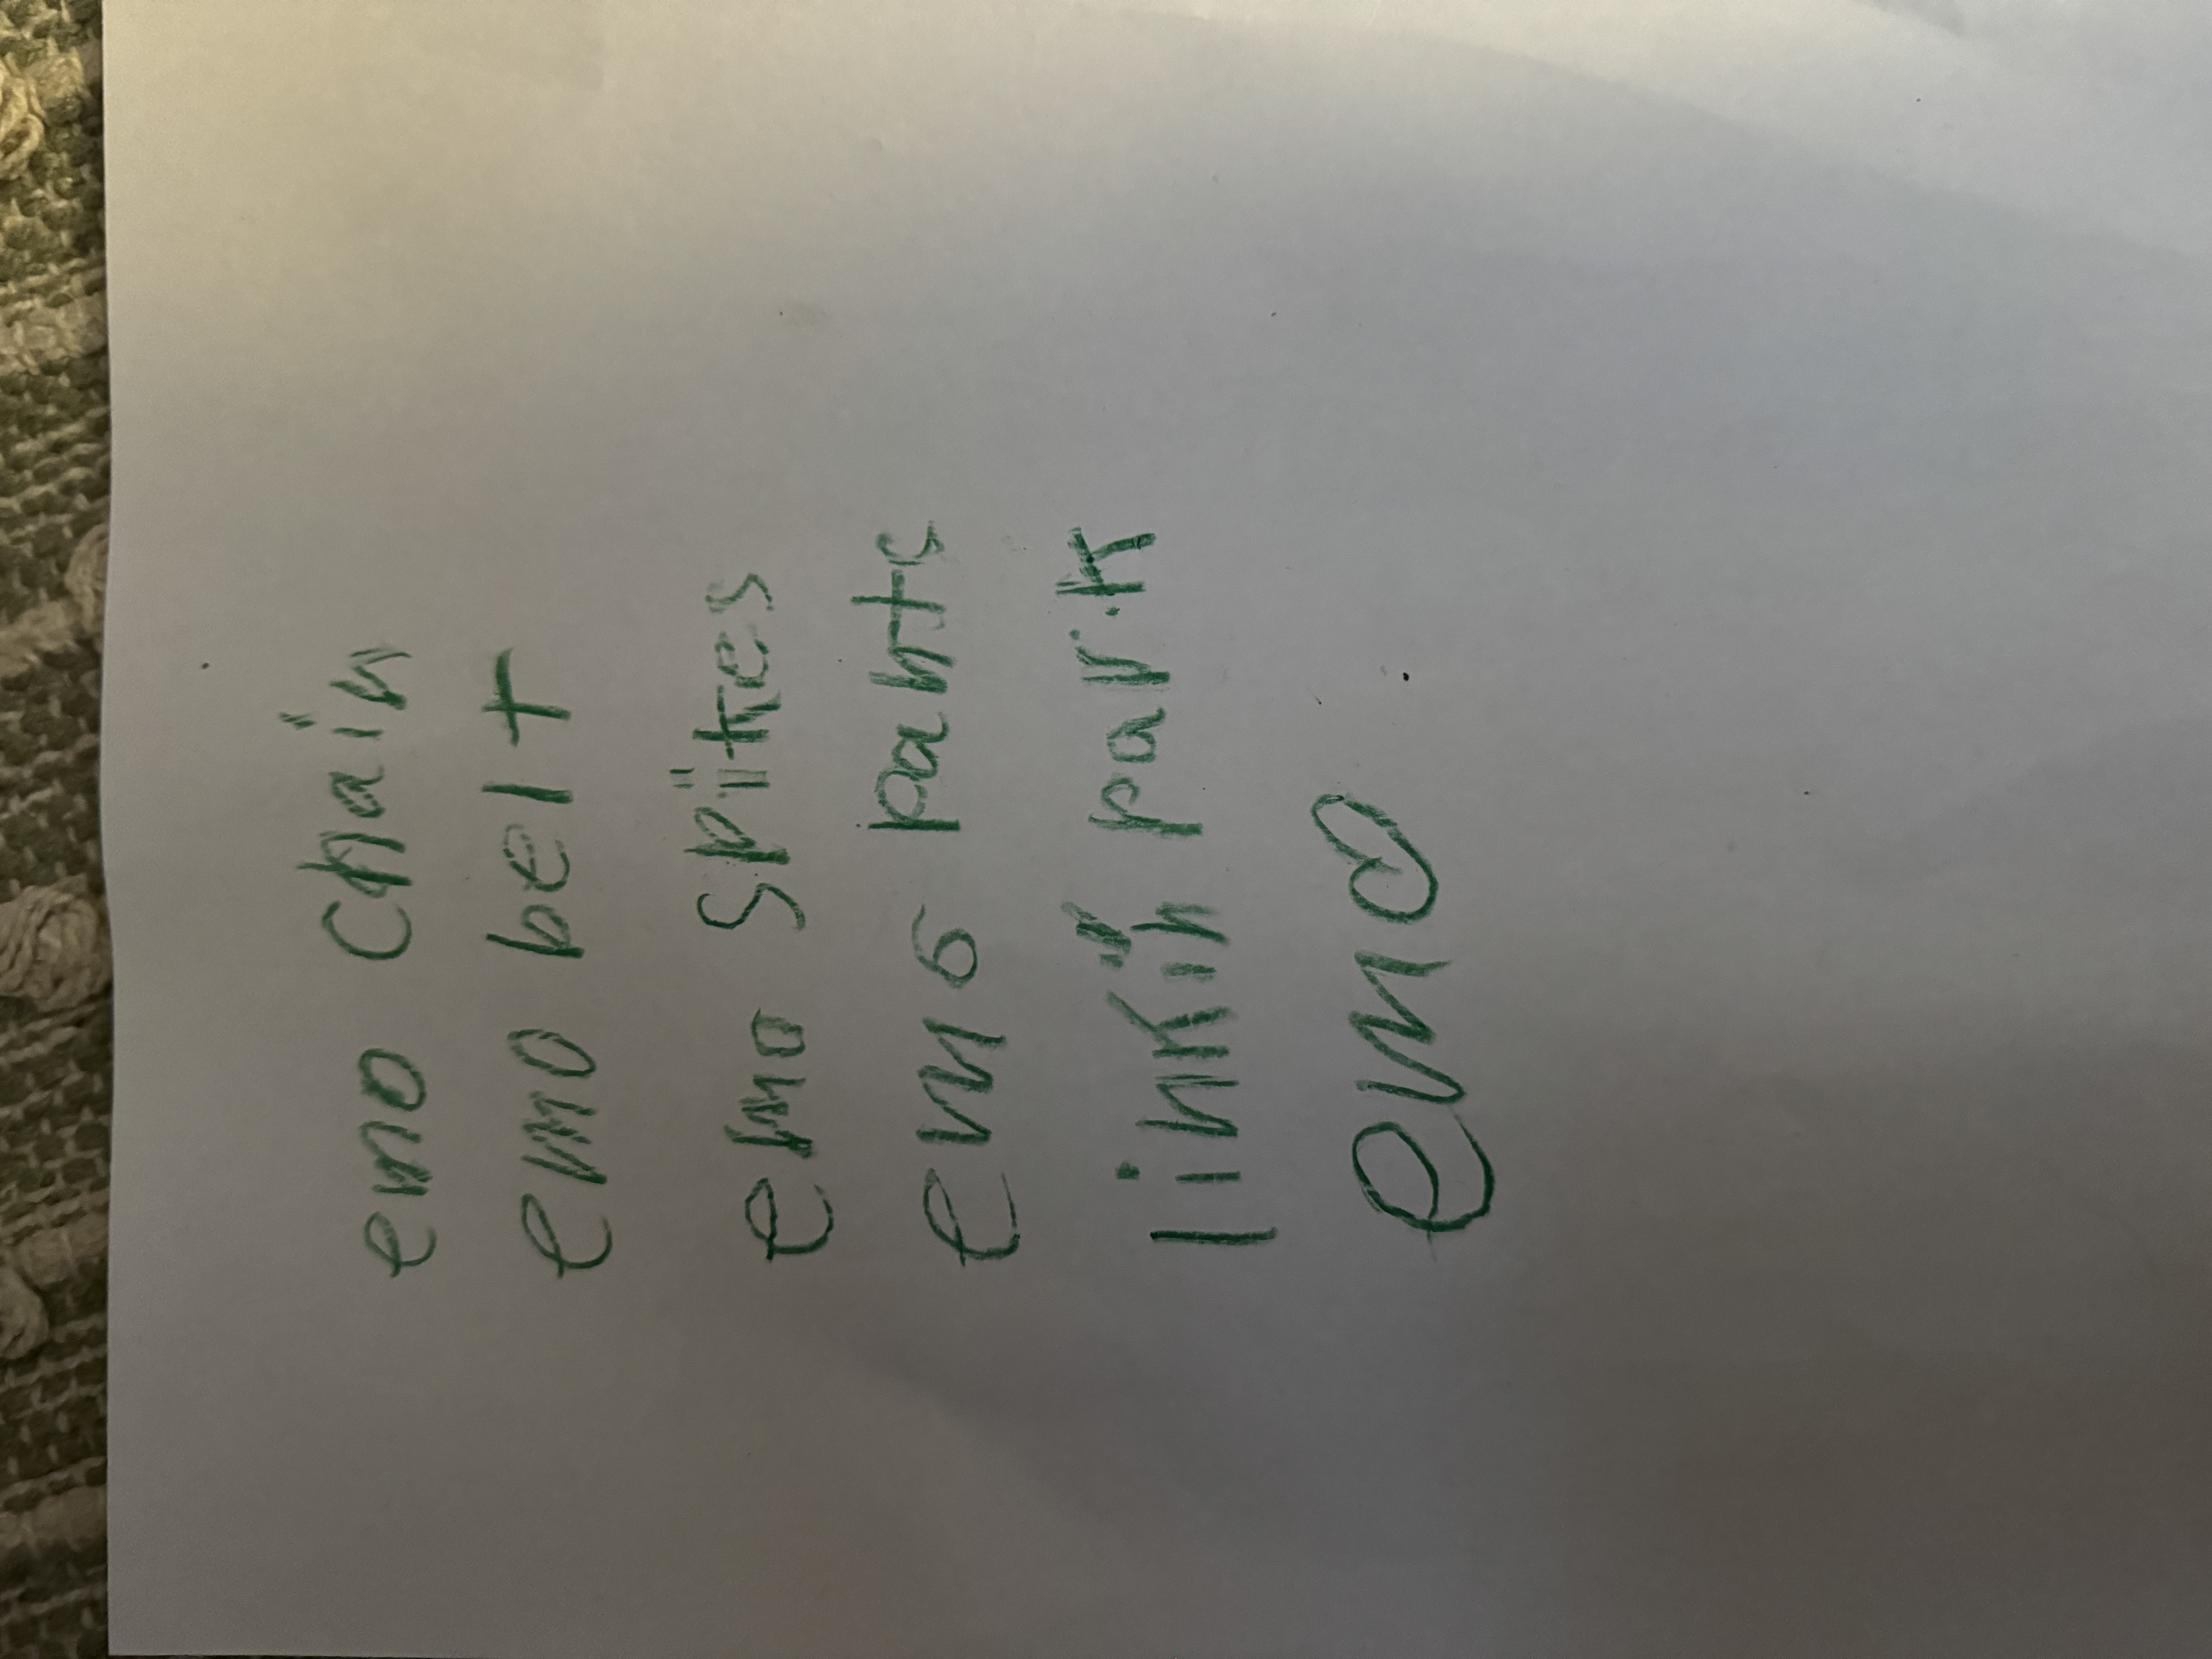 emo chain
emo belt
emo spikes
emo pants
linkin park
emo